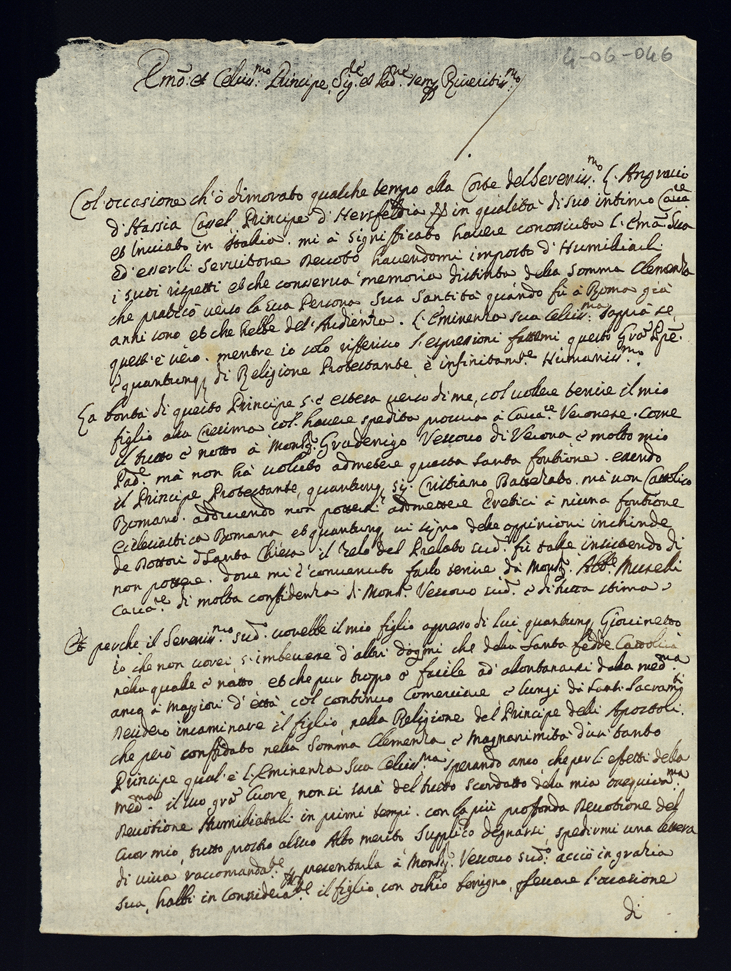 4-06-046
Emõ: et Celsis:mo Principe, Sig:re et Pad:ne sempre Riveritis:mo
Col occasione ch'ò dimorato qualche tempo alla Corte del Serenis:mo L: Angravio
d'Hassia Cassel Principe d'Hersfeldia in qualità di suo intimo
et Inviato in Italia. mi à significato havere conosciuta l: Emã: Sua
ed'esserli Servitore Devoto havendomi imposto d'Humiliarli
i suoi rispetti et che conserva memoria distinta della somma Clemenza
che praticò verso la sua Persona Sua Santità quando fù à Roma già
anni sono et ch'hebbe del'Audienze. L'Eminenza sua Celsis:ma saprà se
quest'è vero. mentre io solo rifferisco l'espressioni fattemi questo Gra: Pp̃e:
e quantunq; di Religione Protestante, è infinitam:te Humanis:mo.
La bontà di questo Principe s'è estesa verso di me, col volere tenire il mio
figlio alla Cresima col havere spedita procura à Cava:re Veronese. come
il tutto è notto à Mons:r Gradenigo Vescovo di Verona, e molto mio
Pad:ne mà non hà voluto admetere questa santa fontione. essendo
il Principe Protestante, quantunq; sij Cristiano Battezato. mà non Cattolico
Romano. adducendo non potersi admettere Eretici à niuna fontione
Eclesiastica Romana et quantunq; vi siano delle oppinioni inchinde
de Dottori di Santa Chiesa. il Zelo del Prelato sud:o fù tale insistendo di
non potere. dove mi è convenuto farlo tenire da Mons:r Abb:te Muselli
Cava:re di molta confidenza di Mons:r Vescovo sud:o e di tutta stima
Et perche il Serenis:mo sud:o vorebbe il mio figlio apresso di lui quantunq; Giovinetto
io che non vorei, s'imbevesse d'altri dogmi che della Santa fede Cattolica
nella quale è natto et che pur troppo è facile ad'allontanarsi dalla med:ma
anco à maggiori d'ettà, col continuo Comercione e lungi da Santi Sacram:ti
desidero incaminare il figlio, nella Religione del Principe delli Apostoli.
che però conffidato nella Somma Clemenza e Magnanimità d'un tanto
Principe qual'è l'Eminenza Sua Celsis:ma sperando anco che per li effetti della
med:ma il suo gra: Cuore, non si sarà del tutto scordatto della mia ossequios:ma
devotione Humiliatali in primi tempi. con la più profonda devotione del
Cuor mio, tutto prostro al suo Alto merito supplico degnarsi spedirmi una lettera
di viva raccomandat:ne per presentarla à Mons:r Vescovo sud:o acciò in grazia
sua, habbi in considerat:ne il figlio, con ochio benigno, il'occasione
di